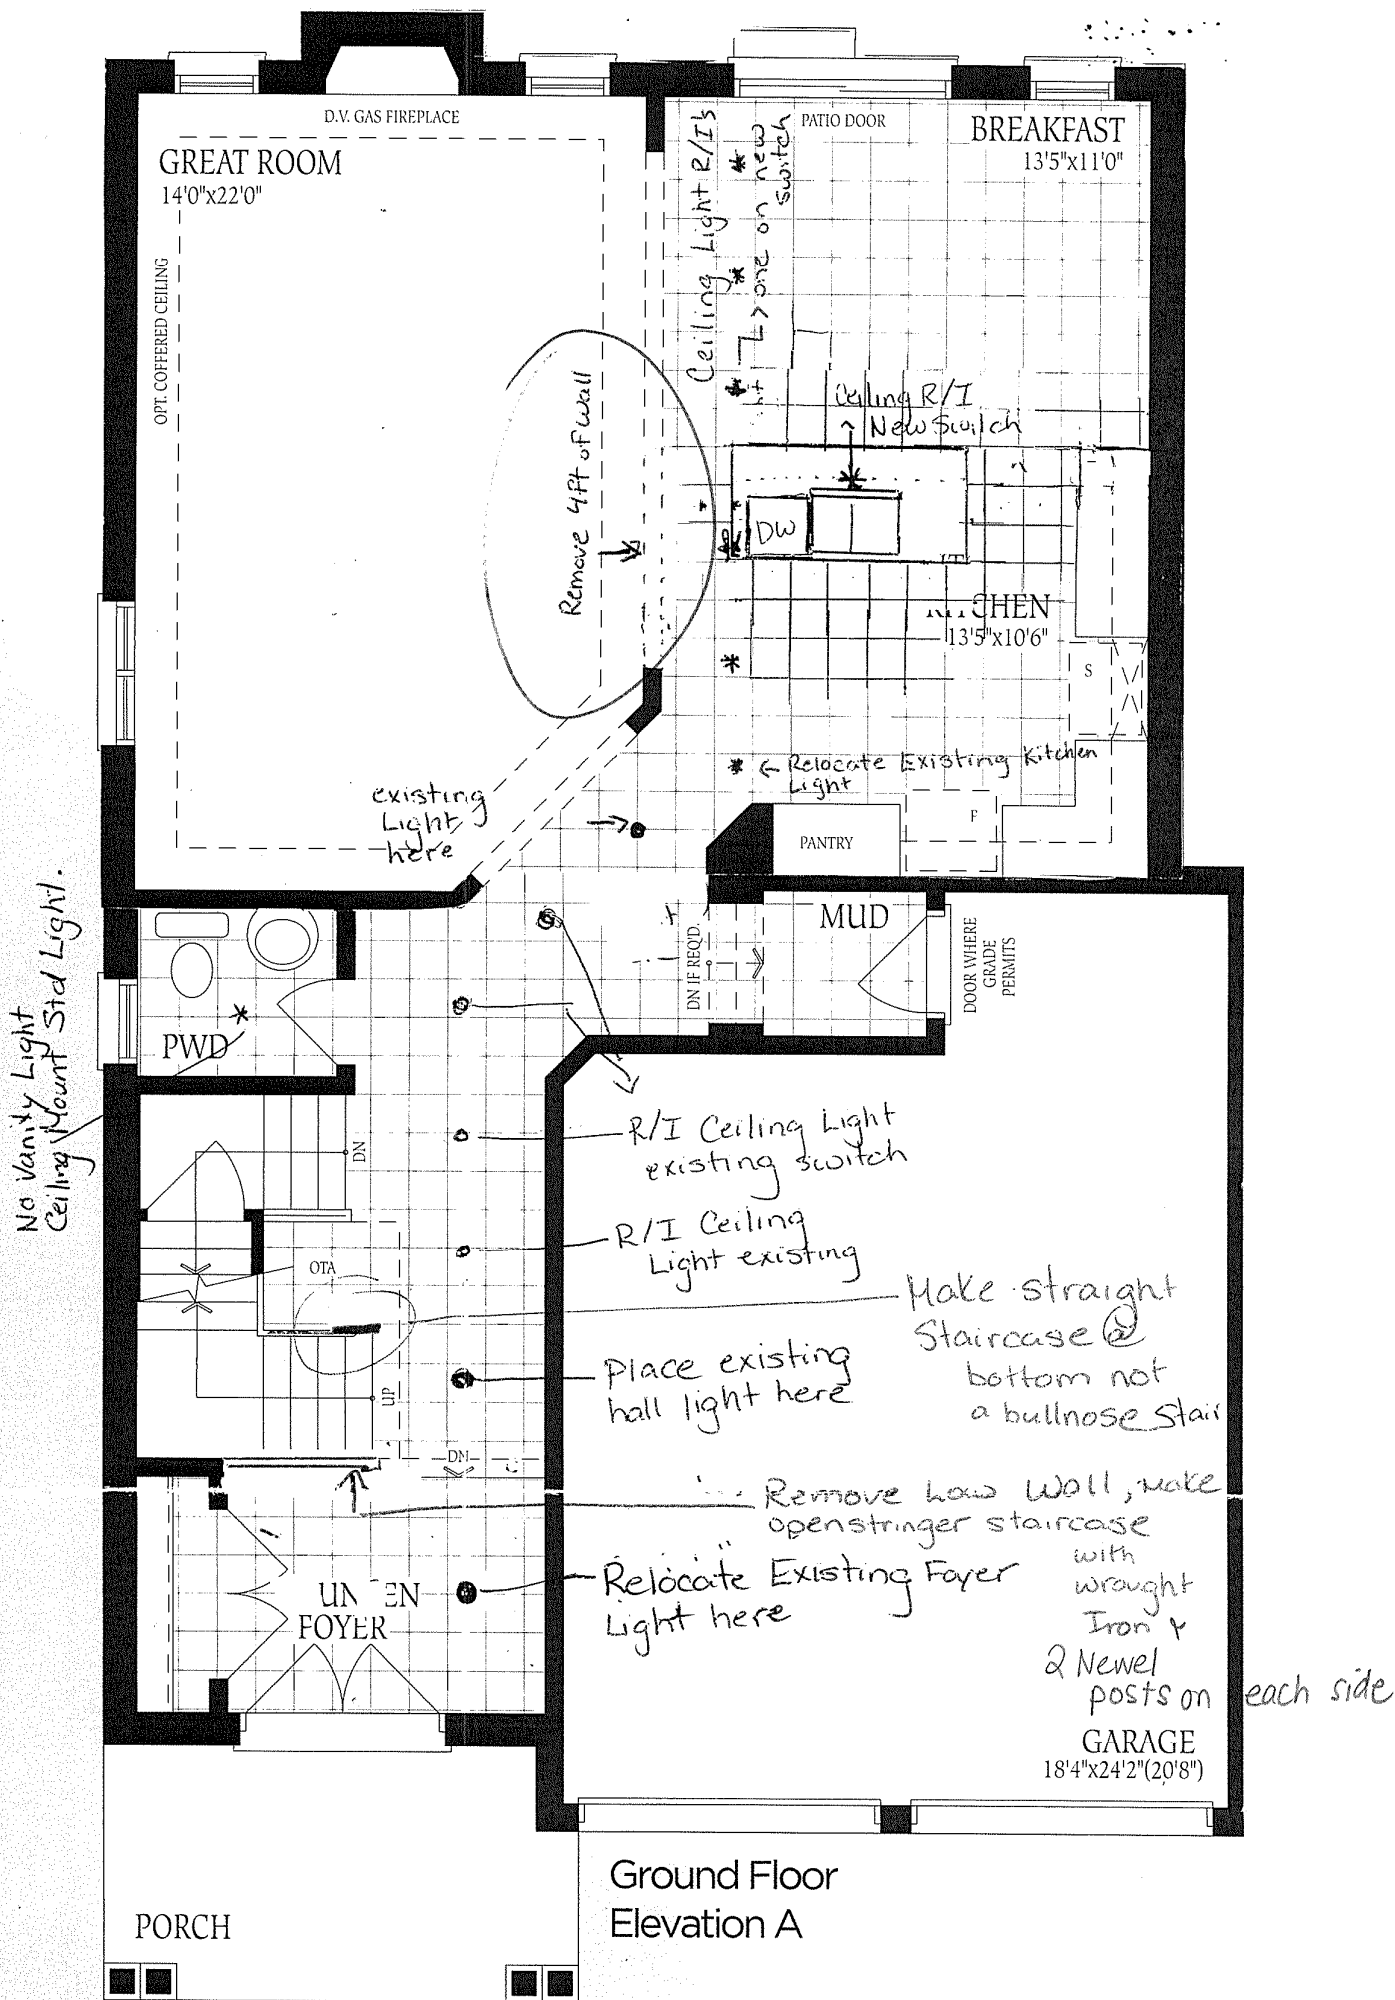 D.V. GAS FIREPLACE
GREAT ROOM
14'0"x22'0"
OPT. COFFERED CEILING
Ceiling Light R/I's
↳ one on new
switch
PATIO DOOR
BREAKFAST
13'5"x11'0"
Remove 4ft of wall
Ceiling R/I
New Switch
DW
KITCHEN
13'5"x10'6"
S
← Relocate Existing Kitchen
Light
existing
Light
here
PANTRY
F
MUD
DN IF REQ'D.
DOOR WHERE
GRADE
PERMITS
PWD
No Vanity Light
Ceiling Mount Std Light.
DN
R/I Ceiling Light
existing switch
R/I Ceiling
Light existing
OTA
Make straight
Staircase @
bottom not
a bullnose stair
Place existing
hall light here
UP
DN
Remove Low Wall, make
openstringer staircase
with
wrought
Iron &
2 Newel
posts on each side
Relocate Existing Foyer
Light here
FOYER
GARAGE
18'4"x24'2"(20'8")
Ground Floor
Elevation A
PORCH